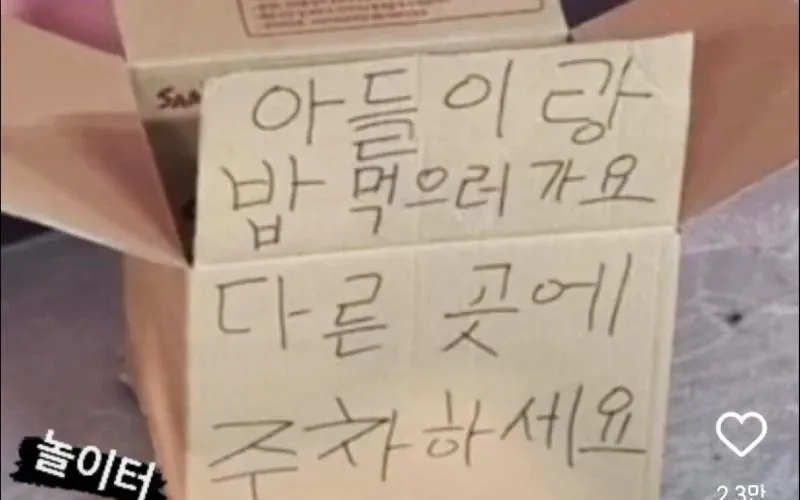 SAN
아들이랑
밥 먹으러 가요
다른 곳에
주차하세요
놀이터
2.3만